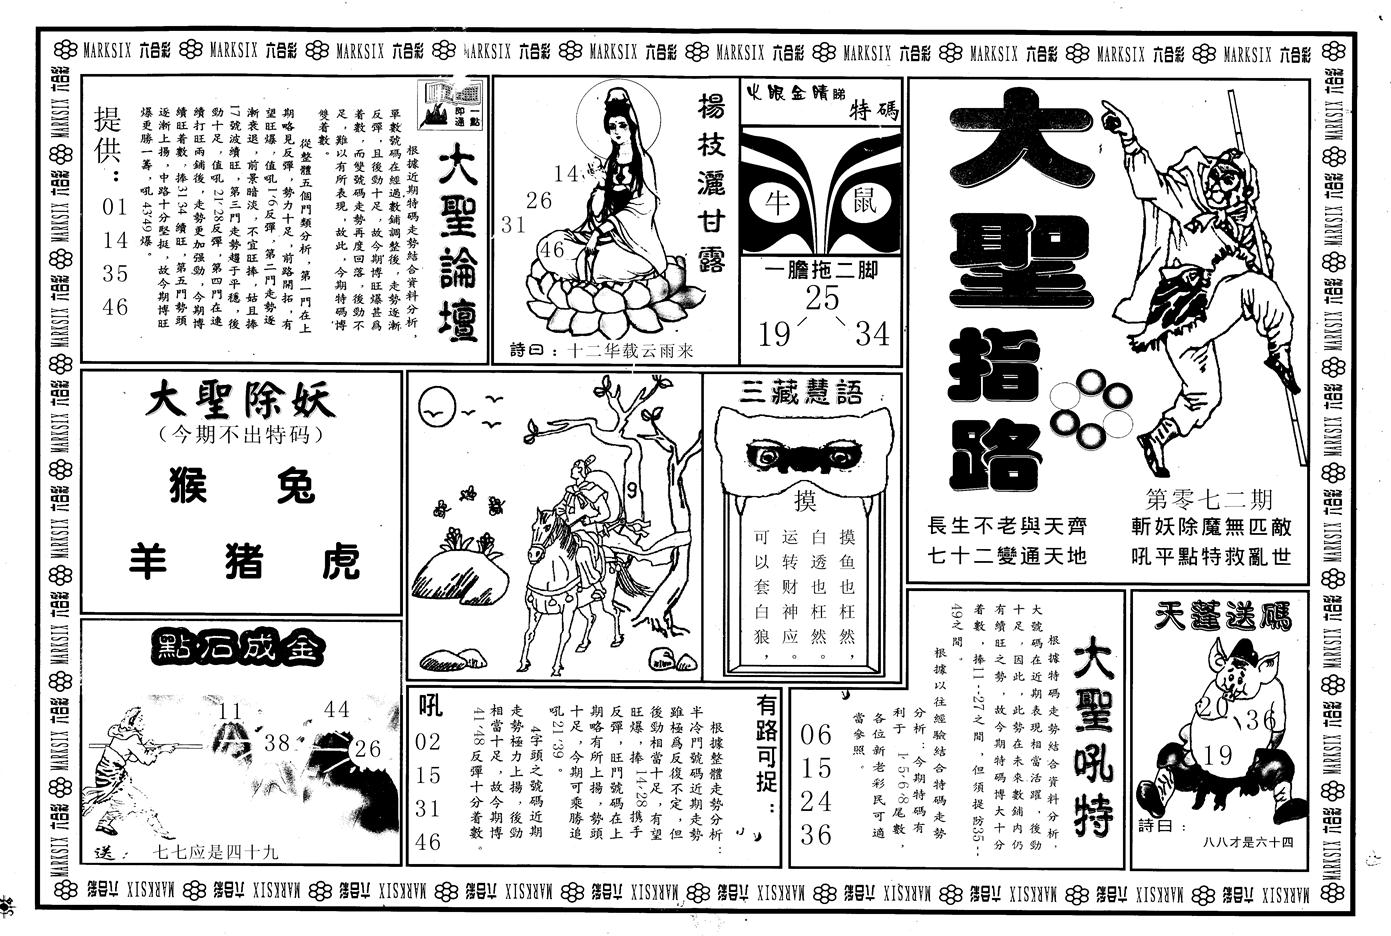 MARKSIX 六合彩 MARKSIX 六合彩 MARKSIX 六合彩 MARKSIX 六合彩 MARKSIX 六合彩 MARKSIX 六合彩 MARKSIX 六合彩 MARKSIX 六合彩 MARKSIX 六合彩 MARKSIX 六合彩
大聖指路
第零七二期
長生不老與天齊
七十二變通天地
斬妖除魔無匹敵
吼平點特救亂世
火眼金睛睇特碼
牛
鼠
一膽拖二脚
25
19
34
楊枝灑甘露
14
26
31
46
詩曰：十二华载云雨来
一點即通
大聖論壇
根據近期特碼走勢結合資料分析，
單數號碼在經過數鋪調整後，走勢逐漸
反彈，且後勁十足，故今期博旺爆甚爲
着數，而雙號碼走勢再度回落，後勁不
足，難以有所表現，故此，今期特碼博
雙着數。
從整體五個門類分析，第一門在上
期略見反彈，勢力十足，前路開拓，有
望旺爆，值吼1·6反彈，第二門走勢逐
漸衰退，前景暗淡，不宜旺捧，姑且捧
17號波續旺，第三門走勢趨于平穩，後
勁十足，值吼21·28反彈，第四門在連
續打旺兩鋪後，走勢更加强勁，今期博
續旺着數，捧31·34續旺，第五門勢頭
逐漸上揚，中路十分堅挺，故今期博旺
爆更勝一籌，吼43·49爆。
提供：
01
14
35
46
大聖除妖
（今期不出特码）
猴 兔
羊 猪 虎
點石成金
11
44
38
26
送：七七应是四十九
9
三藏慧語
摸
摸鱼也枉然，
白透也枉然。
运转财神应。
可以套白狼，
有路可捉：
根據整體走勢分析：
半冷門號碼近期走勢
雖極爲反復不定，但
後勁相當十足，有望
旺爆，捧14·28携手
反彈，旺門號碼在上
期略有所上揚，勢頭
十足，今期可乘勝追
吼21·39。
4字頭之號碼近期
走勢極力上揚，後勁
相當十足，故今期博
41·48反彈十分着數。
吼
02
15
31
46
大聖吼特
根據特碼走勢結合資料分析，
大號碼在近期表現相當活躍，後勁
十足，因此，此勢在未來數鋪内仍
有續旺之勢，故今期特碼博大十分
着數，捧11--27之間，但須提防35--
49之間。
根據以往經驗結合特碼走勢
分析：今期特碼有
利于1·5·6·8尾數，
各位新老彩民可適
當參照。
06
15
24
36
天蓬送碼
20
36
19
詩曰：
八八才是六十四